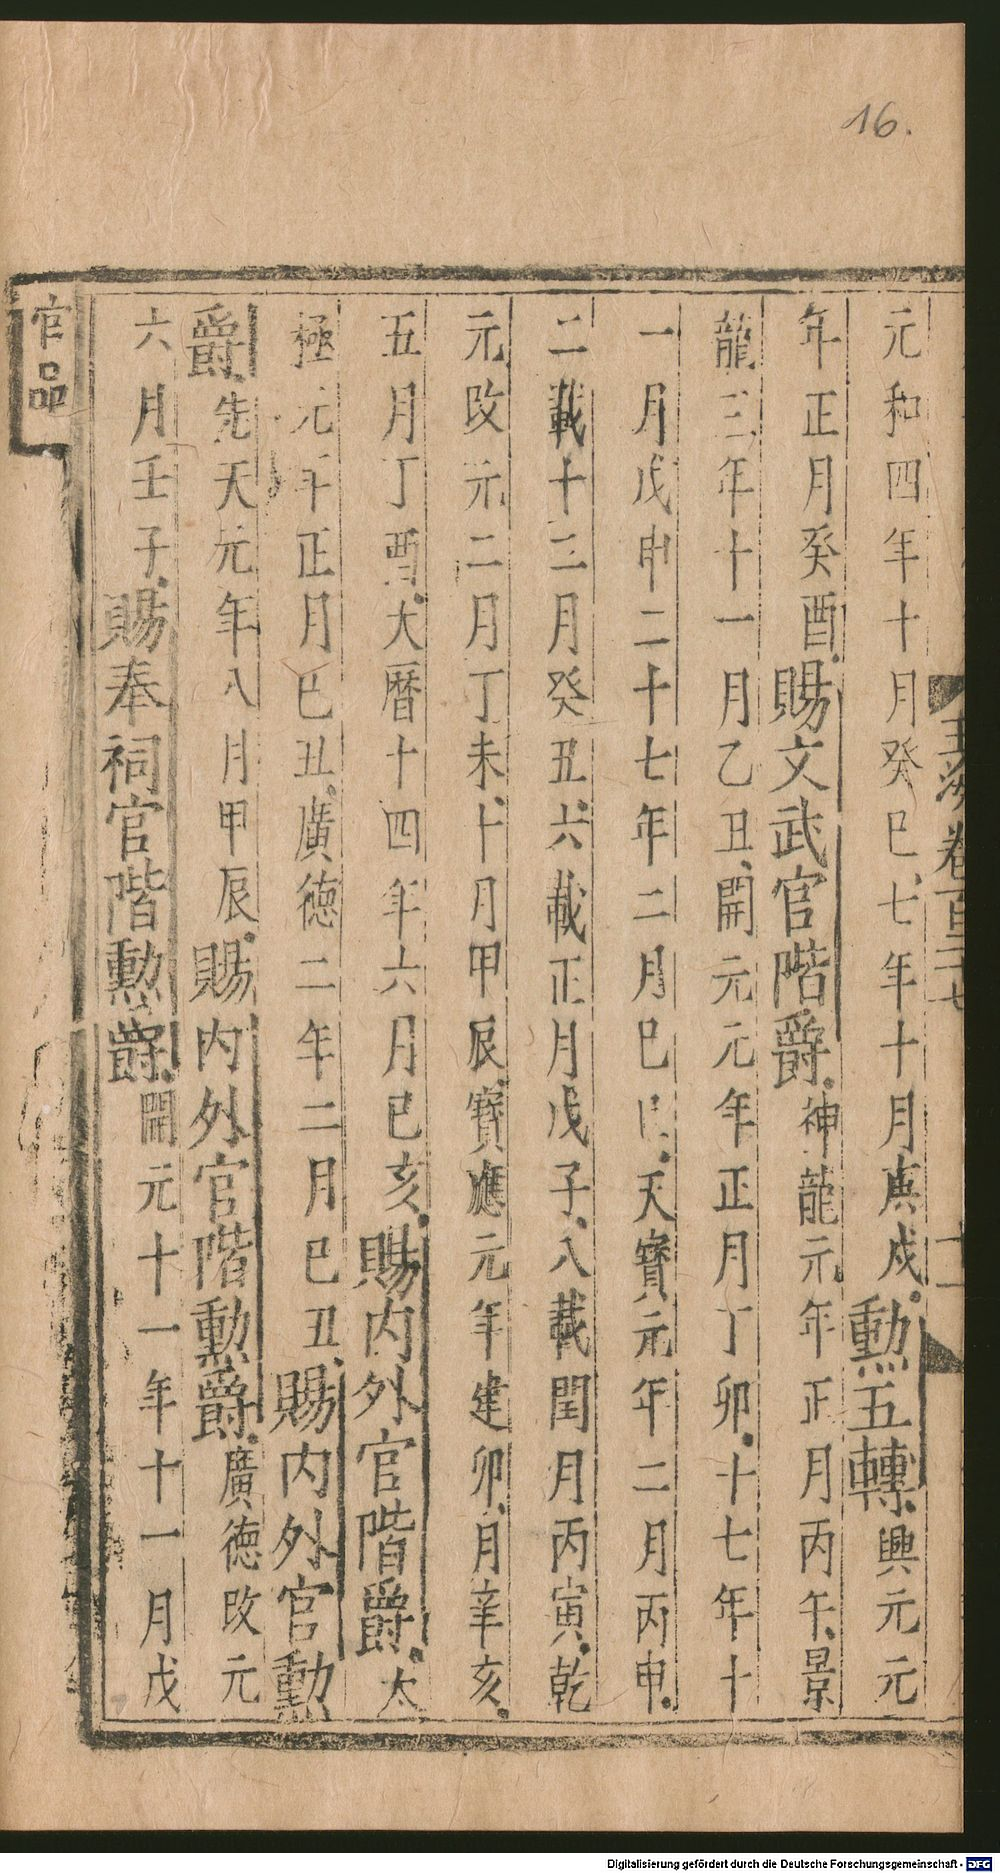 16.
玉海 卷百二十七
十一
元和四年十月癸巳、七年十月庚戌。勳五轉、興元元
年正月癸酉。賜文武官階爵。神龍元年正月丙午、景
龍三年十一月乙丑、開元元年正月丁卯。十七年十
一月戊申二十七年二月巳巳、天寶元年二月丙申。
二載十二月癸丑、六載正月戊子、八載閏月丙寅。乾
元改元二月丁未、十月甲辰、寶應元年建卯、月辛亥。
五月丁酉、大曆十四年六月己亥。賜內外官階爵。太
極元年正月巳丑、廣德二年二月巳丑、賜內外官勳
爵、先天元年八月甲辰。賜內外官階勳爵。廣德改元
六月壬子、賜奉祠官階勳爵。開元十一年十一月戊
官品
Digitalisierung gefördert durch die Deutsche Forschungsgemeinschaft - DFG